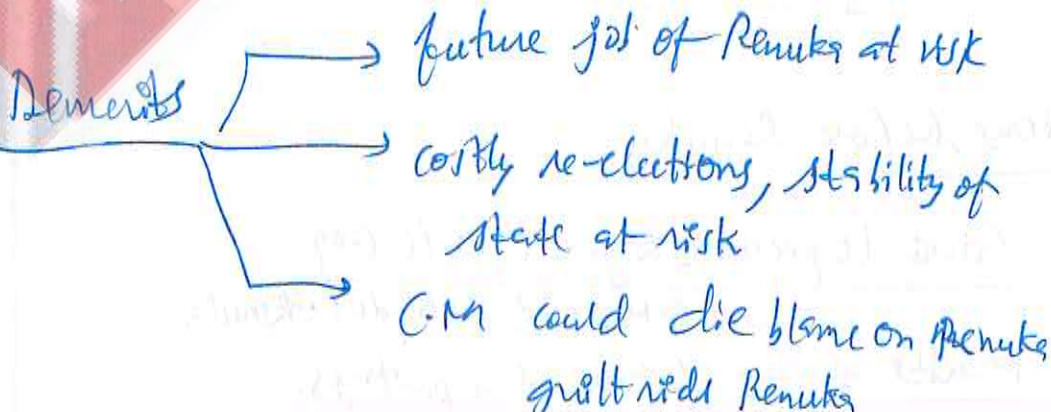 Demerits
future job of Renuka at risk
costly re-elections, stability of
state at risk
C.M could die blame on Renuka
guilt rids Renuka